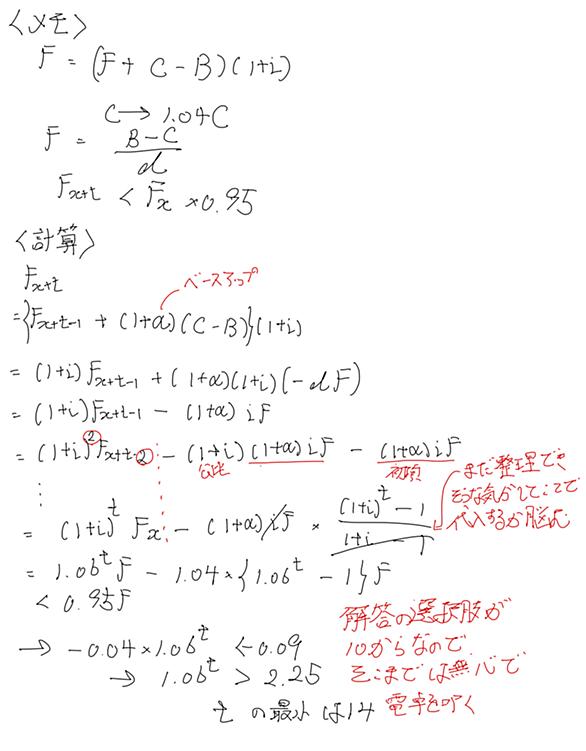 <メモ>
F = (F + C - B)(1+i)
C → 1.04C
F = (B-C)/d
F_{x+t} < F_x × 0.95
<計算>
F_{x+t}
ベースアップ
= {F_{x+t-1} + (1+α)(C-B)}(1+i)
= (1+i)F_{x+t-1} + (1+α)(1+i)(-dF)
= (1+i)F_{x+t-1} - (1+α)iF
= (1+i)^2 F_{x+t-2} - (1+i)(1+α)iF - (1+α)iF
公比 初項
まだ整理でき
そうな気がしてここで
代入するか悩む
⋮
= (1+i)^t F_x - (1+α)iF × ((1+i)^t - 1)/(1+i - 1)
= 1.06^t F - 1.04 × {1.06^t - 1}F
< 0.95F
→ -0.04 × 1.06^t < -0.09
→ 1.06^t > 2.25
tの最小は14
解答の選択肢が
10からなので
そこまでは無心で
電卓を叩く